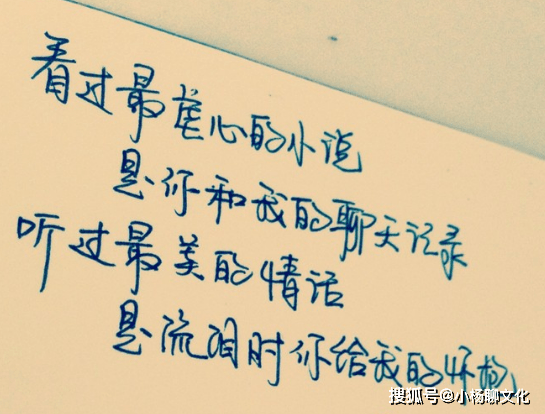 看过最虐心的小说
是你和我的聊天记录
听过最美的情话
是流泪时你给我的怀抱
搜狐号@小杨聊文化